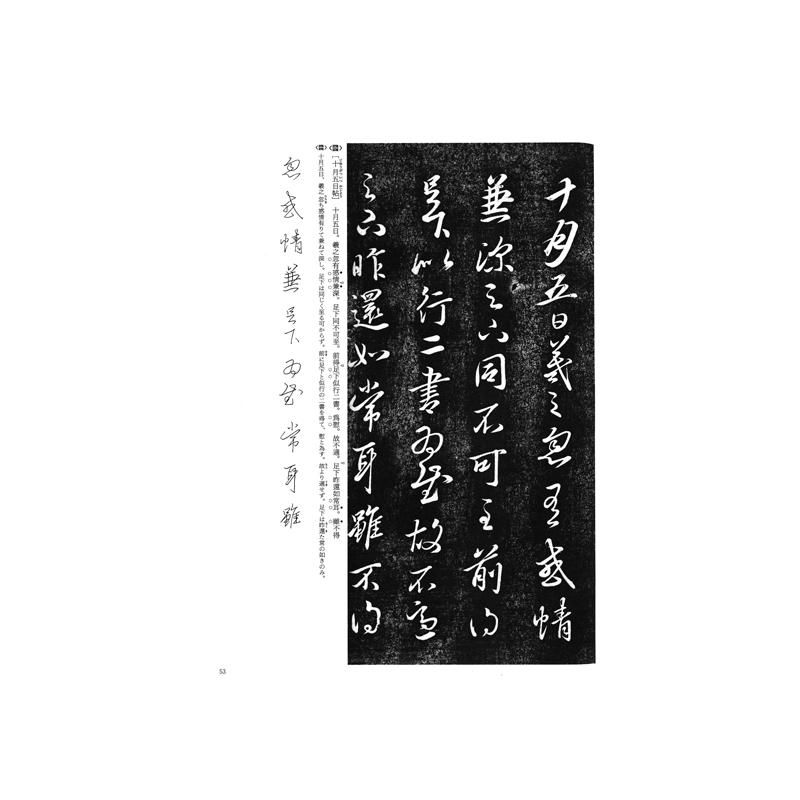 十月五日羲之忽有感情
兼深足下同不可至前得
足下似行二書為慰故不適
足下昨還如常耳雖不得
〈釈〉[十月五日帖] 十月五日。羲之忽有感情兼深。足下同不可至。前得足下似行二書。爲慰。故不適。足下昨還如常耳。雖不得
十月五日、羲之忽ち感情有りて兼ねて深し。足下は同じく至る可からず。前に足下と似行の二書を得て、慰と為す。故より適せず。足下は昨還た常の如きのみ。
忽感情兼足下為慰常耳雖
53